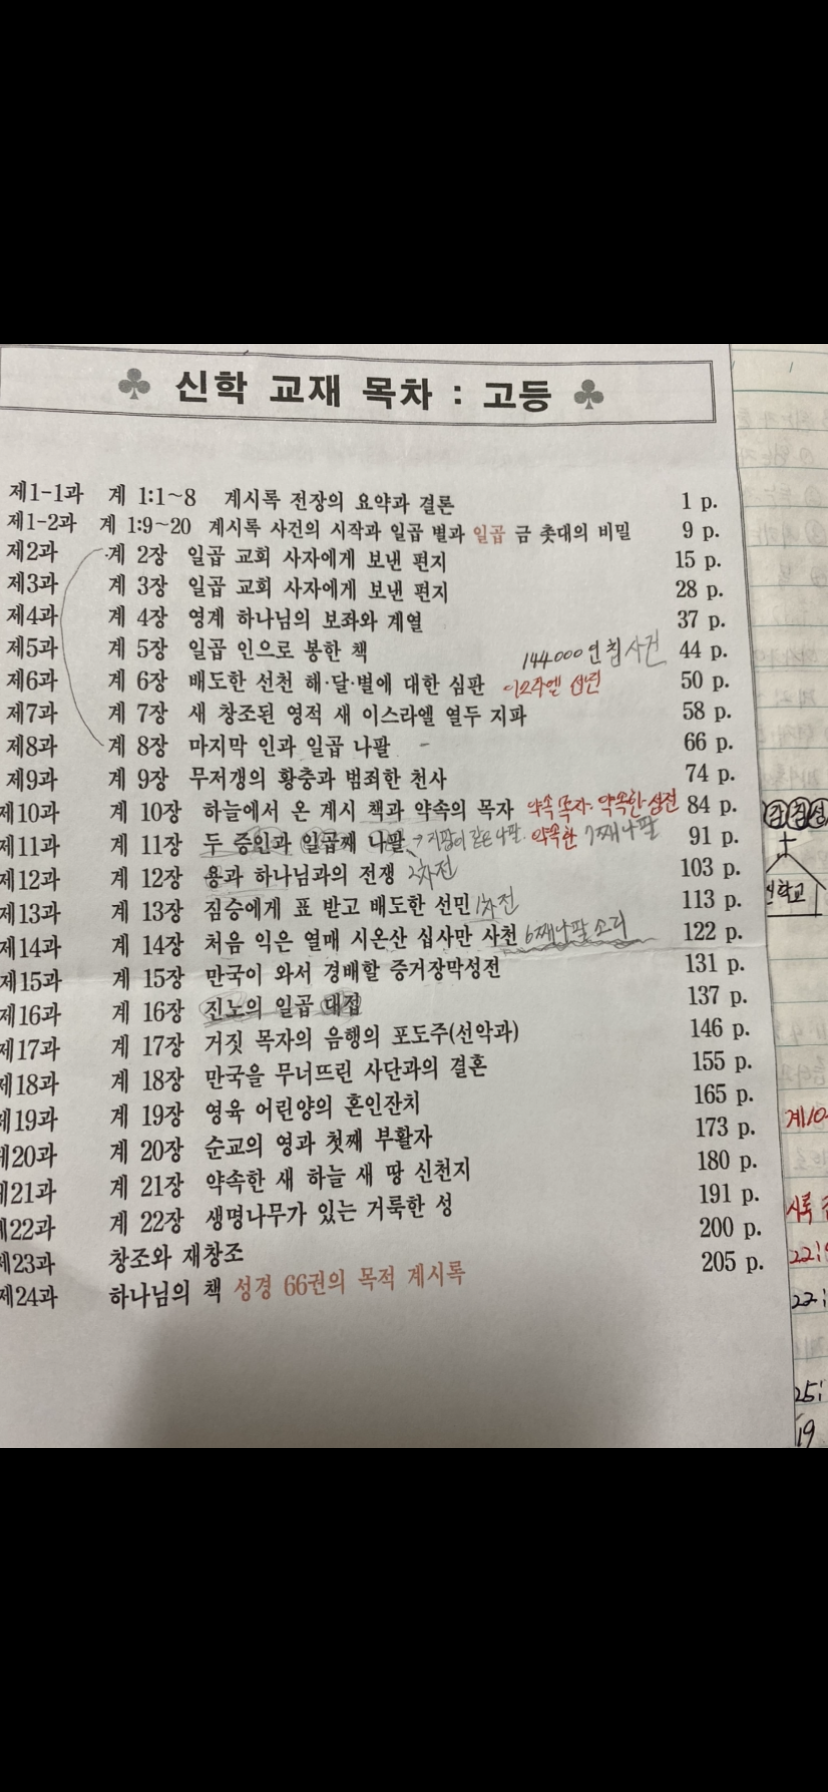 ♣ 신학 교재 목차 : 고등 ♣
제1-1과 계 1:1~8 계시록 전장의 요약과 결론 1 p.
제1-2과 계 1:9~20 계시록 사건의 시작과 일곱 별과 일곱 금 촛대의 비밀 9 p.
제2과 계 2장 일곱 교회 사자에게 보낸 편지 15 p.
제3과 계 3장 일곱 교회 사자에게 보낸 편지 28 p.
제4과 계 4장 영계 하나님의 보좌와 계열 37 p.
제5과 계 5장 일곱 인으로 봉한 책 144.000 인침 사건 44 p.
제6과 계 6장 배도한 선천 해·달·별에 대한 심판 50 p.
제7과 계 7장 새 창조된 영적 새 이스라엘 열두 지파 58 p.
제8과 계 8장 마지막 인과 일곱 나팔 66 p.
제9과 계 9장 무저갱의 황충과 범죄한 천사 74 p.
제10과 계 10장 하늘에서 온 계시 책과 약속의 목자 약속 목자. 약속한 성전 84 p.
제11과 계 11장 두 증인과 일곱째 나팔 → 지팡이 같은 나팔. 약속한 7째 나팔 91 p.
제12과 계 12장 용과 하나님과의 전쟁 2차전 103 p.
제13과 계 13장 짐승에게 표 받고 배도한 선민 1차전 113 p.
제14과 계 14장 처음 익은 열매 시온산 십사만 사천 6째나팔 소리 122 p.
제15과 계 15장 만국이 와서 경배할 증거장막성전 131 p.
제16과 계 16장 진노의 일곱 대접 137 p.
제17과 계 17장 거짓 목자의 음행의 포도주(선악과) 146 p.
제18과 계 18장 만국을 무너뜨린 사단과의 결혼 155 p.
제19과 계 19장 영육 어린양의 혼인잔치 165 p.
제20과 계 20장 순교의 영과 첫째 부활자 173 p.
제21과 계 21장 약속한 새 하늘 새 땅 신천지 180 p.
제22과 계 22장 생명나무가 있는 거룩한 성 191 p.
제23과 창조와 재창조 200 p.
제24과 하나님의 책 성경 66권의 목적 계시록 205 p.
신학교
계10
22:
22:
25:
19